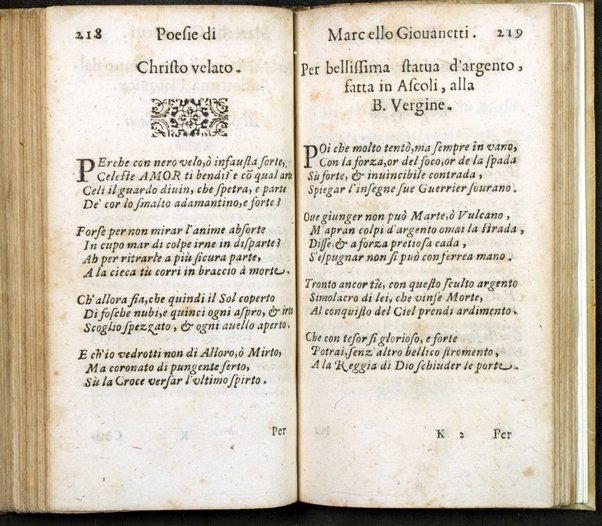 218 Poesie di
Christo velato.
PErche con nero velo, ò infausta sorte,
Celeste AMOR ti bendi? e cõ qual arte
Celi il guardo diuin, che spetra, e parte
De' cor lo smalto adamantino, e forte?
Forse per non mirar l'anime absorte
In cupo mar di colpe irne in disparte?
Ah per ritrarle a più sicura parte,
A la cieca tù corri in braccio à morte.
Ch'allora fia, che quindi il Sol coperto
Di fosche nubi, e quinci ogni aspro, & irto
Scoglio spezzato, & ogni auello aperto.
E ch'io vedrotti non di Alloro, ò Mirto,
Ma coronato di pungente serto,
Sù la Croce versar l'vltimo spirto.
Per
Marcello Giouanetti. 219
Per bellissima statua d'argento,
fatta in Ascoli, alla
B. Vergine.
POi che molto tentò, ma sempre in vano,
Con la forza, or del foco, or de la spada
Sù forte, & inuincibile contrada,
Spiegar l'insegne sue Guerrier sourano.
Oue giunger non può Marte, ò Vulcano,
M'apran colpi d'argento omai la strada,
Disse, & a forza pretiosa cada,
S'espugnar non si può con ferrea mano.
Tronto ancor tù, con questo sculto argento
Simolacro di lei, che vinse Morte,
Al conquisto del Ciel prendi ardimento.
Che con tesor sì glorioso, e forte
Potrai, senz'altro bellico stromento,
A la Reggia di Dio schiuder le porte.
K 2 Per